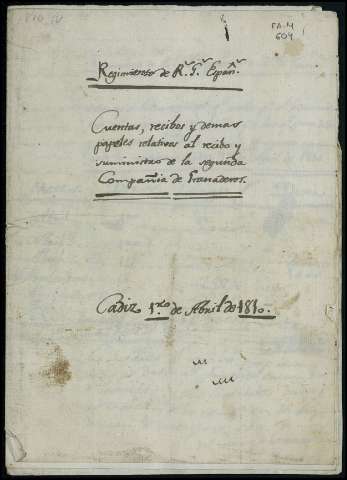 FA.M
604
Regimiento de R.ˢ G.ˢ Españ.ˢ
Cuentas, recibos y demas
papeles relativos al recibo y
suministro de la segunda
Compañia de Granaderos.
Cadiz 1.ʳᵒ de Abril de 1810.